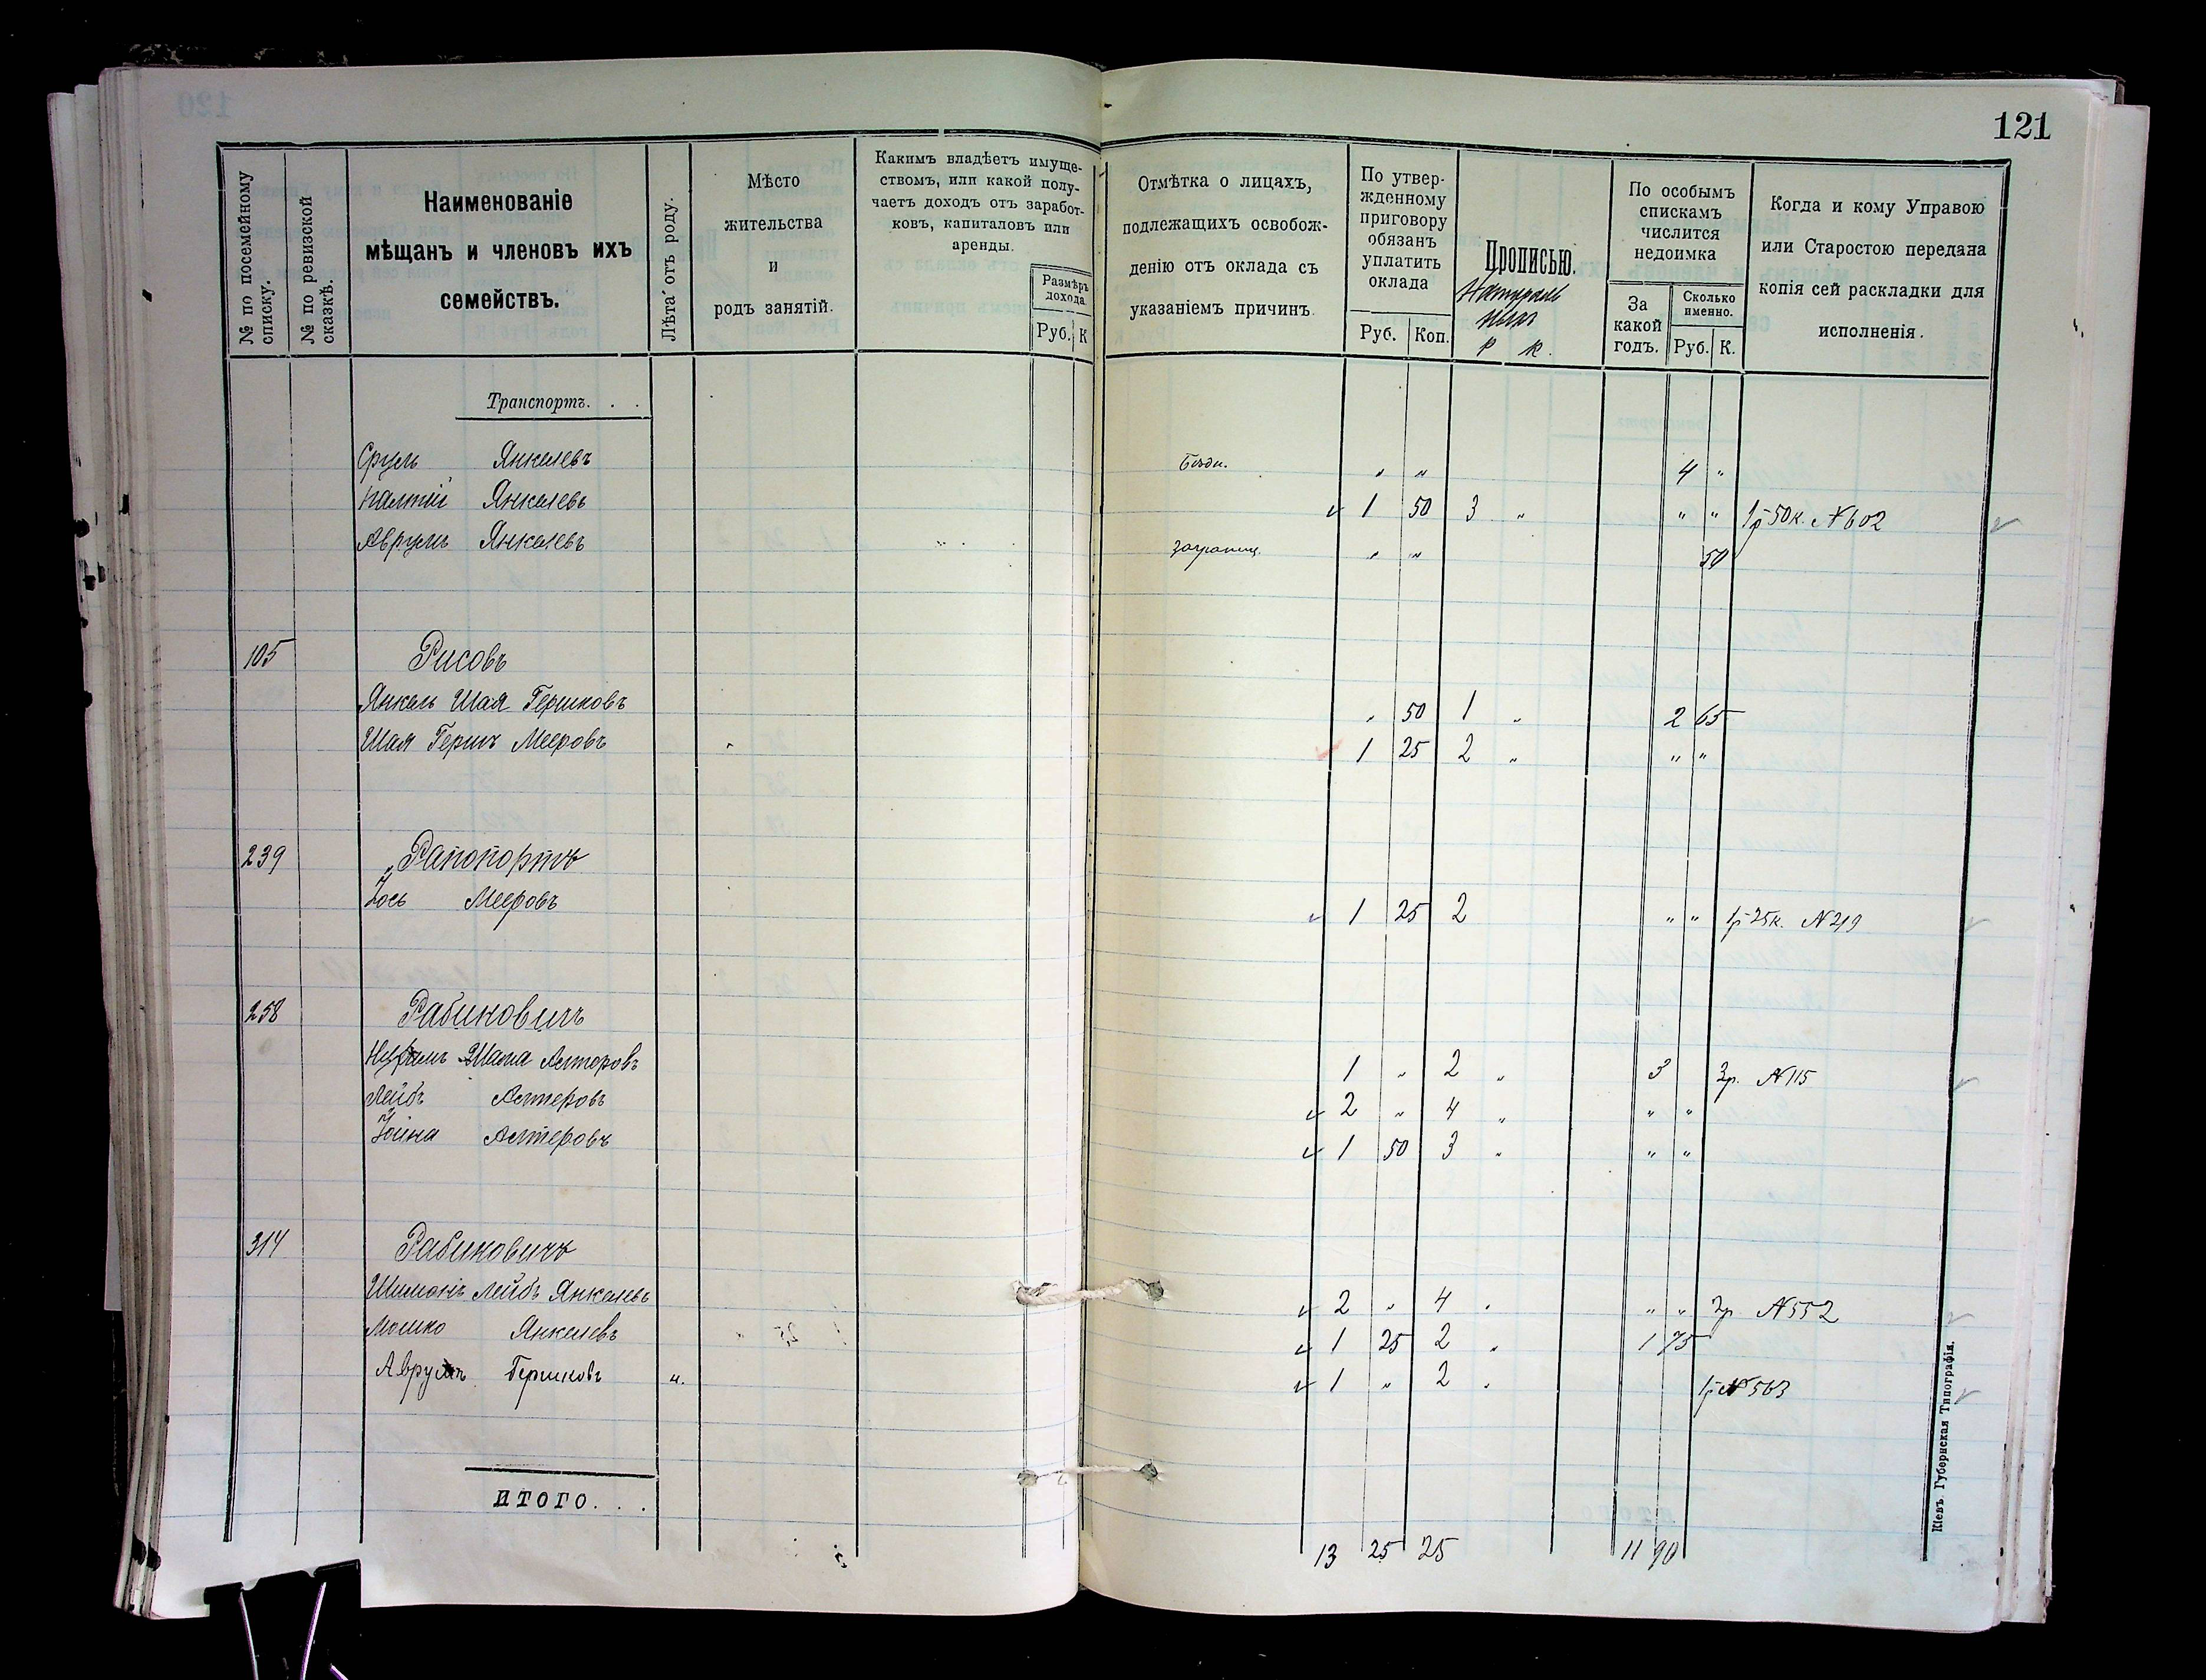 121
№ по посемейному списку.
№ по ревизской сказкѣ.
Наименованіе
мѣщанъ и членовъ ихъ
семействъ.
Лѣта отъ роду.
Мѣсто
жительства
и
родъ занятій.
Какимъ владѣетъ имуще-
ствомъ, или какой полу-
чаетъ доходъ отъ заработ-
ковъ, капиталовъ или
аренды.
Размѣръ
дохода.
Руб. К
Отмѣтка о лицахъ,
подлежащихъ освобож-
денію отъ оклада съ
указаніемъ причинъ.
По утвер-
жденному
приговору
обязанъ
уплатить
оклада
Руб. Коп.
Прописью.
Р К.
По особымъ
спискамъ
числится
недоимка
За
какой
годъ.
Сколько
именно.
Руб. К.
Когда и кому Управою
или Старостою передана
копія сей раскладки для
исполненія.
Транспортъ. . .
Сруль Янкелевъ „ „ 4 „
Палтій Янкелевъ 1 50 3 „ „ „ 1р 50к. N 602
Аврумъ Янкелевъ заграниц. „ „ 50
105 Рисовъ
Янкель Шая Гершковъ „ 50 1 „ 2 65
Шая Гершъ Мееровъ 1 25 2 „ „ „
239 Рапопортъ
Іось Мееровъ 1 25 2 „ „ 1р 25к. N 219
258 Рабиновичъ
Шапса Алтеровъ 1 „ 2 „ 3 3р. N 115
Лейбъ Алтеровъ 2 „ 4 „ „ „
Іойна Алтеровъ 1 50 3 „ „ „
314 Рабиновичъ
Шимонъ Лейбъ Янкелевъ 2 „ 4 „ „ „ 2р. N 552
Мошко Янкелевъ 1 25 2 „ 1 75
Аврумъ Гершковъ „. 1 „ 2 „ 1р N 563
ИТОГО. . .
13 25 25 11 90
Кіевъ. Губернская Типографія.